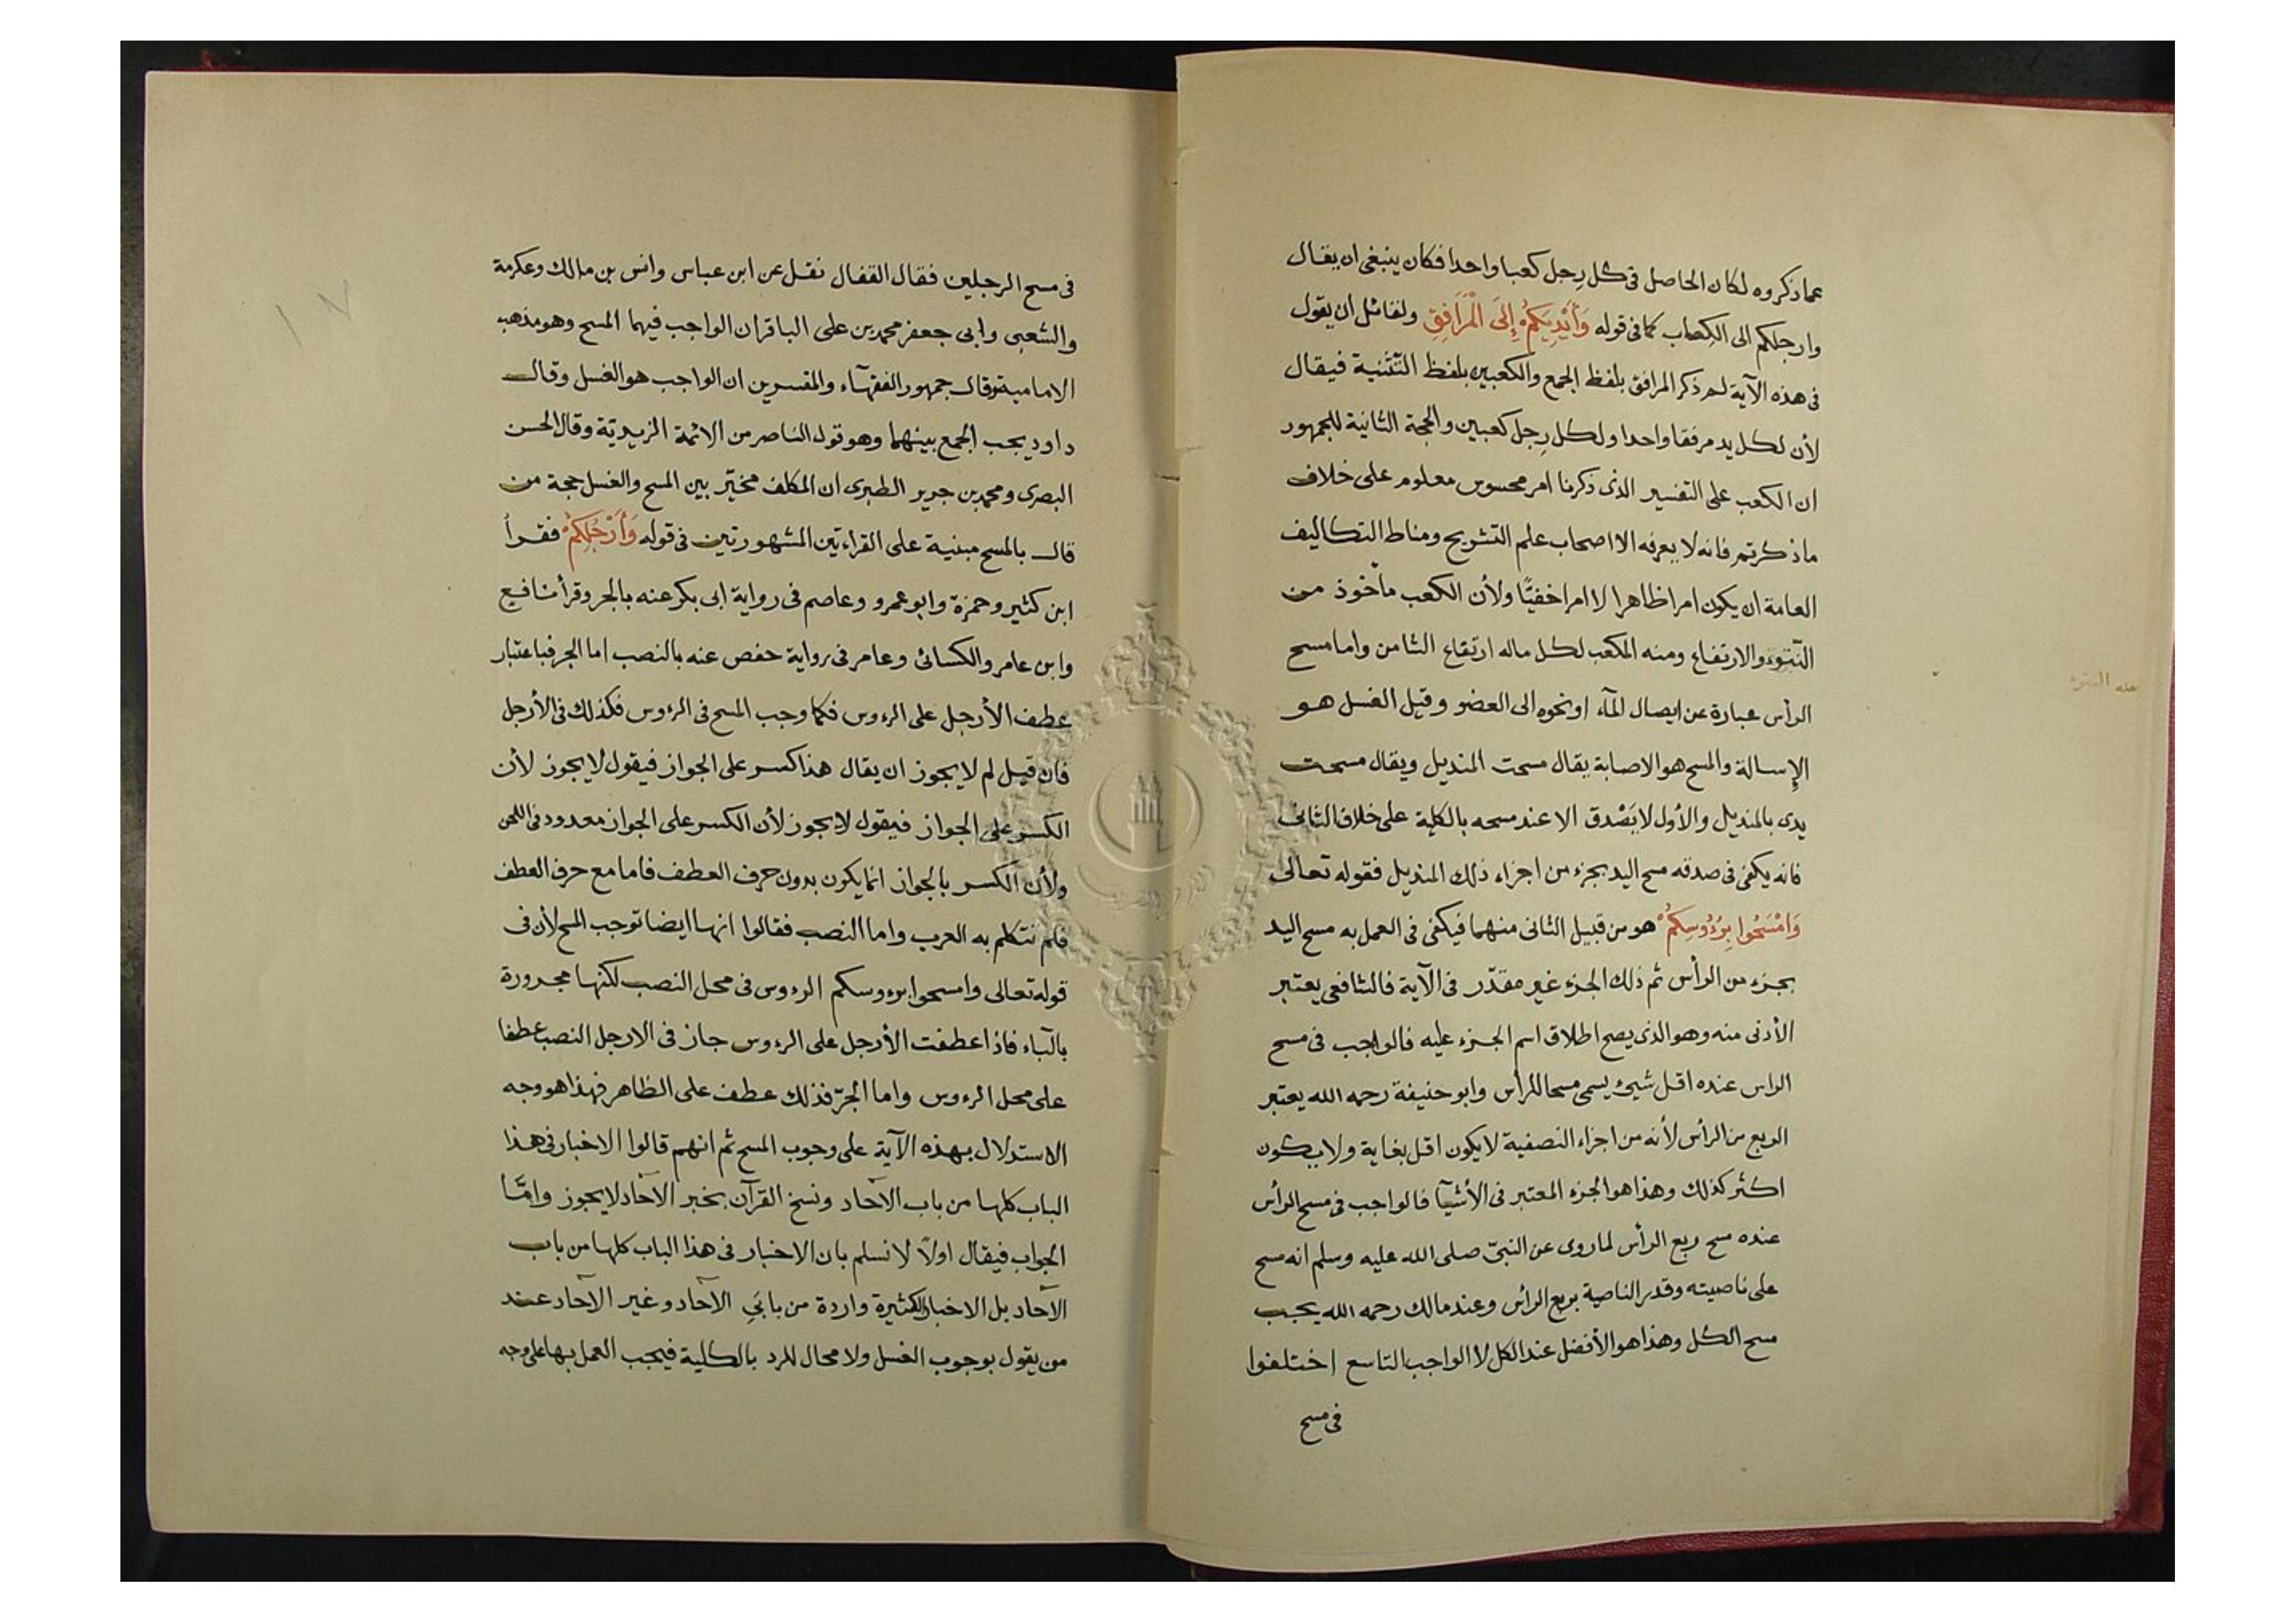 عما ذكروه لكان الحاصل فى كل رِجل كعبا واحدا فكان ينبغى ان يقال
وارجلكم الى الكِعاب كما فى قوله وَأَيْدِيَكُمْ إِلَى الْمَرَافِقِ ولقائل ان يقول
فى هذه الآية لم ذكر المرافق بلفظ الجمع والكعبين بلفظ التّثنية فيقال
لأن لكل يد مرفقا واحدا ولكل رِجل كعبين والحجة الثانية للجمهور
ان الكعب على التفسير الذى ذكرنا امر محسوس معلوم على خلاف
ماذكرتم فانه لا يعرفه الا اصحاب علم التشريح ومناط التكاليف
العامة ان يكون امرا ظاهرا لا امرا خفيًّا ولأن الكعب مأخوذ من
النّتوء والارتفاع ومنه المكعب لكل ماله ارتفاع الثامن واما مسح
الرأس عبارة عن ايصال المآء او نحوه الى العضو وقيل الغسل هو
الإسالة والمسح هو الاصابة يقال مسحت المنديل ويقال مسحت
يدى بالمنديل والأول لا يَصْدق الا عند مسحه بالكلية على خلاف الثانى
فانه يكفى فى صدقه مسح اليد بجزء من اجزاء ذلك المنديل فقوله تعالى
وَامْسَحُوا بِرُءُوسِكُمْ هو من قبيل الثانى منهما فيكفى فى العمل به مسح اليد
بجزء من الرأس ثم ذلك الجزء غير مقدّر فى الآية فالشافعى يعتبر
الأدنى منه وهو الذى يصح اطلاق اسم الجزء عليه فالواجب فى مسح
الراس عنده اقل شيئ يسمى مسحا للرأس وابو حنيفة رحمه الله يعتبر
الربع من الرأس لأنه من اجزاء النصفية لا يكون اقل بغاية ولا يكون
اكثر كذلك وهذا هو الجزء المعتبر فى الأشيآ فالواجب فى مسح الرأس
عنده مسح ربع الرأس لما روى عن النبىّ صلى الله عليه وسلم انه مسح
على ناصيته وقدر الناصية بربع الرأس وعند مالك رحمه الله يجب
مسح الكل وهذا هو الأفضل عند الكل لا الواجب التاسع اختلفوا
فى مسح
فى مسح الرجلين فقال القفال نقل عن ابن عباس وانس بن مالك وعكرمة
والشعبى وابى جعفر محمد بن على الباقر ان الواجب فيهما المسح وهو مذهب
الامامية وقال جمهور الفقهآء والمفسرين ان الواجب هو الغسل وقال
داود يجب الجمع بينهما وهو قول الناصر من الائمة الزيديّة وقال الحسن
البصرى ومحمد بن جرير الطبرى ان المكلف مخيّر بين المسح والغسل حجة من
قال بالمسح مبنية على القراءتين المشهورتين فى قوله وَأَرْجُلِكُمْ فقرأ
ابن كثير وحمزة وابو عمرو وعاصم فى رواية ابى بكر عنه بالجر وقرأ نافع
وابن عامر والكسائى وعامر فى رواية حفص عنه بالنصب اما الجر فباعتبار
عطف الأرجل على الرءوس فكما وجب المسح فى الرءوس فكذلك فى الأرجل
فان قيل لم لا يجوز ان يقال هذا كسر على الجواز فيقول لا يجوز لأن
الكسر على الجواز فيقول لا يجوز لأن الكسر على الجواز معدود فى اللحن
ولأن الكسر بالجواز انما يكون بدون حرف العطف فاما مع حرف العطف
فلم تتكلم به العرب واما النصب فقالوا انها ايضا توجب المسح لأن فى
قوله تعالى وامسحوا برءوسكم الرءوس فى محل النصب لكنها مجرورة
بالبآء فاذا عطفت الأرجل على الرءوس جاز فى الارجل النصب عطفا
على محل الرءوس واما الجرّ فذلك عطف على الظاهر فهذا هو وجه
الاستدلال بهذه الآية على وجوب المسح ثم انهم قالوا الاخبار فى هذا
الباب كلها من باب الآحاد ونسخ القرآن بخبر الآحاد لا يجوز وامّا
الجواب فيقال اولاً لا نسلم بان الاخبار فى هذا الباب كلها من باب
الآحاد بل الاخبار الكثيرة واردة من بابَىِ الآحاد وغير الآحاد عند
من يقول بوجوب الغسل ولا محال للرد بالكلية فيجب العمل بها على وجه